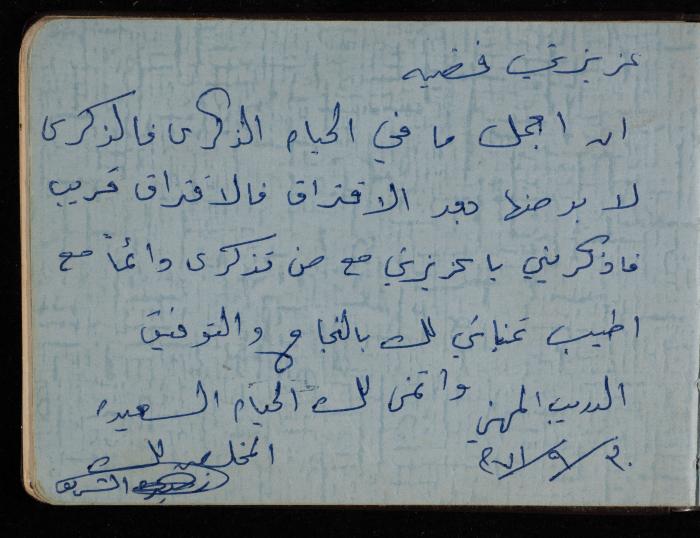 عزيزتي فضيه
ان اجمل ما في الحياه الذكرى فالذكرى
لا بد منها بعد الافتراق فالافتراق قريب
فاذكريني يا عزيزتي مع من تذكرى دائماً مع
اطيب تمنياتي لك بالنجاح والتوفيق
واتمنى لك الحياه السعيده
التدريب المهني
المخلص لك
الشريف